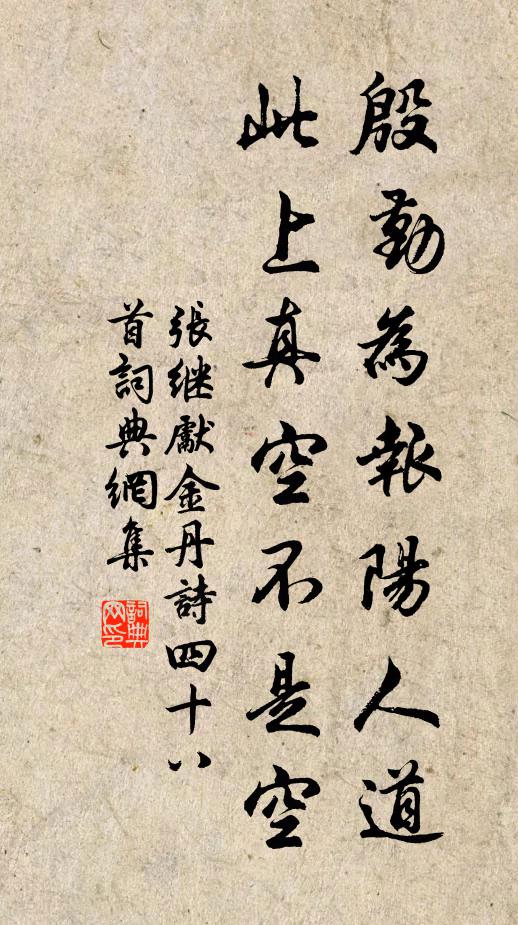 殷勤為報陽人道
此上真空不是空
張继獻金丹詩四十八
首詞典網集
詞典
网印